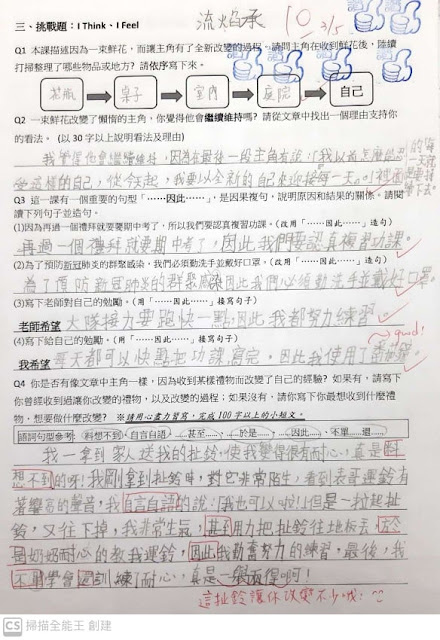 三、挑戰題：I Think、I Feel
10 3/5
Q1 本課描述因為一束鮮花，而讓主角有了全新改變的過程。請問主角在收到鮮花後，陸續
打掃整理了哪些物品或地方？請依序寫下來。
花瓶 桌子 室內 庭院 自己
Q2 一束鮮花改變了懶惰的主角，你覺得他會繼續維持嗎？請從文章中找出一個理由支持你
的看法。（以30字以上說明看法及理由）
我覺得他會繼續維持，因為在最後一段主角有說：「我以前怎麼能忍
受這樣的自己，從今天起，我要以全新的自己來迎接每一天。」
Q3 這一課有一個重要的句型「……因此……」，是因果複句，說明原因和結果的關係。請閱
讀下列句子並造句。
(1)因為再過一個禮拜就要期中考了，所以我們要認真複習功課。（改用「……因此……」造句）
再過一個禮拜就要期中考了，因此我們要認真複習功課。
(2)為了預防新冠肺炎的群聚感染，我們必須勤洗手並戴好口罩。（改用「……因此……」造句）
為了預防新冠肺炎的群聚感染因此我們必須勤洗手並戴好口罩。
(3)寫下老師對自己的勉勵。（用「……因此……」接寫句子）
老師希望 大隊接力要跑快一點，因此我都努力練習。
(4)寫下給自己的勉勵。（用「……因此……」接寫句子）
good!
我希望 每天都可以快點把功課寫完，因此我使用了番茄鐘。
Q4 你是否有像文章中主角一樣，因為收到某樣禮物而改變了自己的經驗？如果有，請寫下
你曾經收到過讓你改變的禮物，以及改變的過程；如果沒有，請你寫下你最想收到什麼禮
物，想要做什麼改變？ ※請用心盡力習寫，完成100字以上的小短文。
語詞句型參考：料想不到、自言自語、……甚至……、……於是……、……因此……、不單……還……
我一拿到家人送我的扯鈴，使我變得很有耐心，真是料
想不到的呀！我剛拿到扯鈴時，對它非常陌生，看到表哥運鈴有
著響亮的聲音，我自言自語的說：「我也可以啦！」但是一拉起扯
鈴，又往下掉，我非常生氣，甚至用力把扯鈴往地板丟，於
是奶奶耐心的教我運鈴，因此我勤奮努力的練習，最後，我
不單學會還訓練了耐心，真是一舉兩得啊！
這扯鈴讓你改變不少哦！
CS 掃描全能王 創建